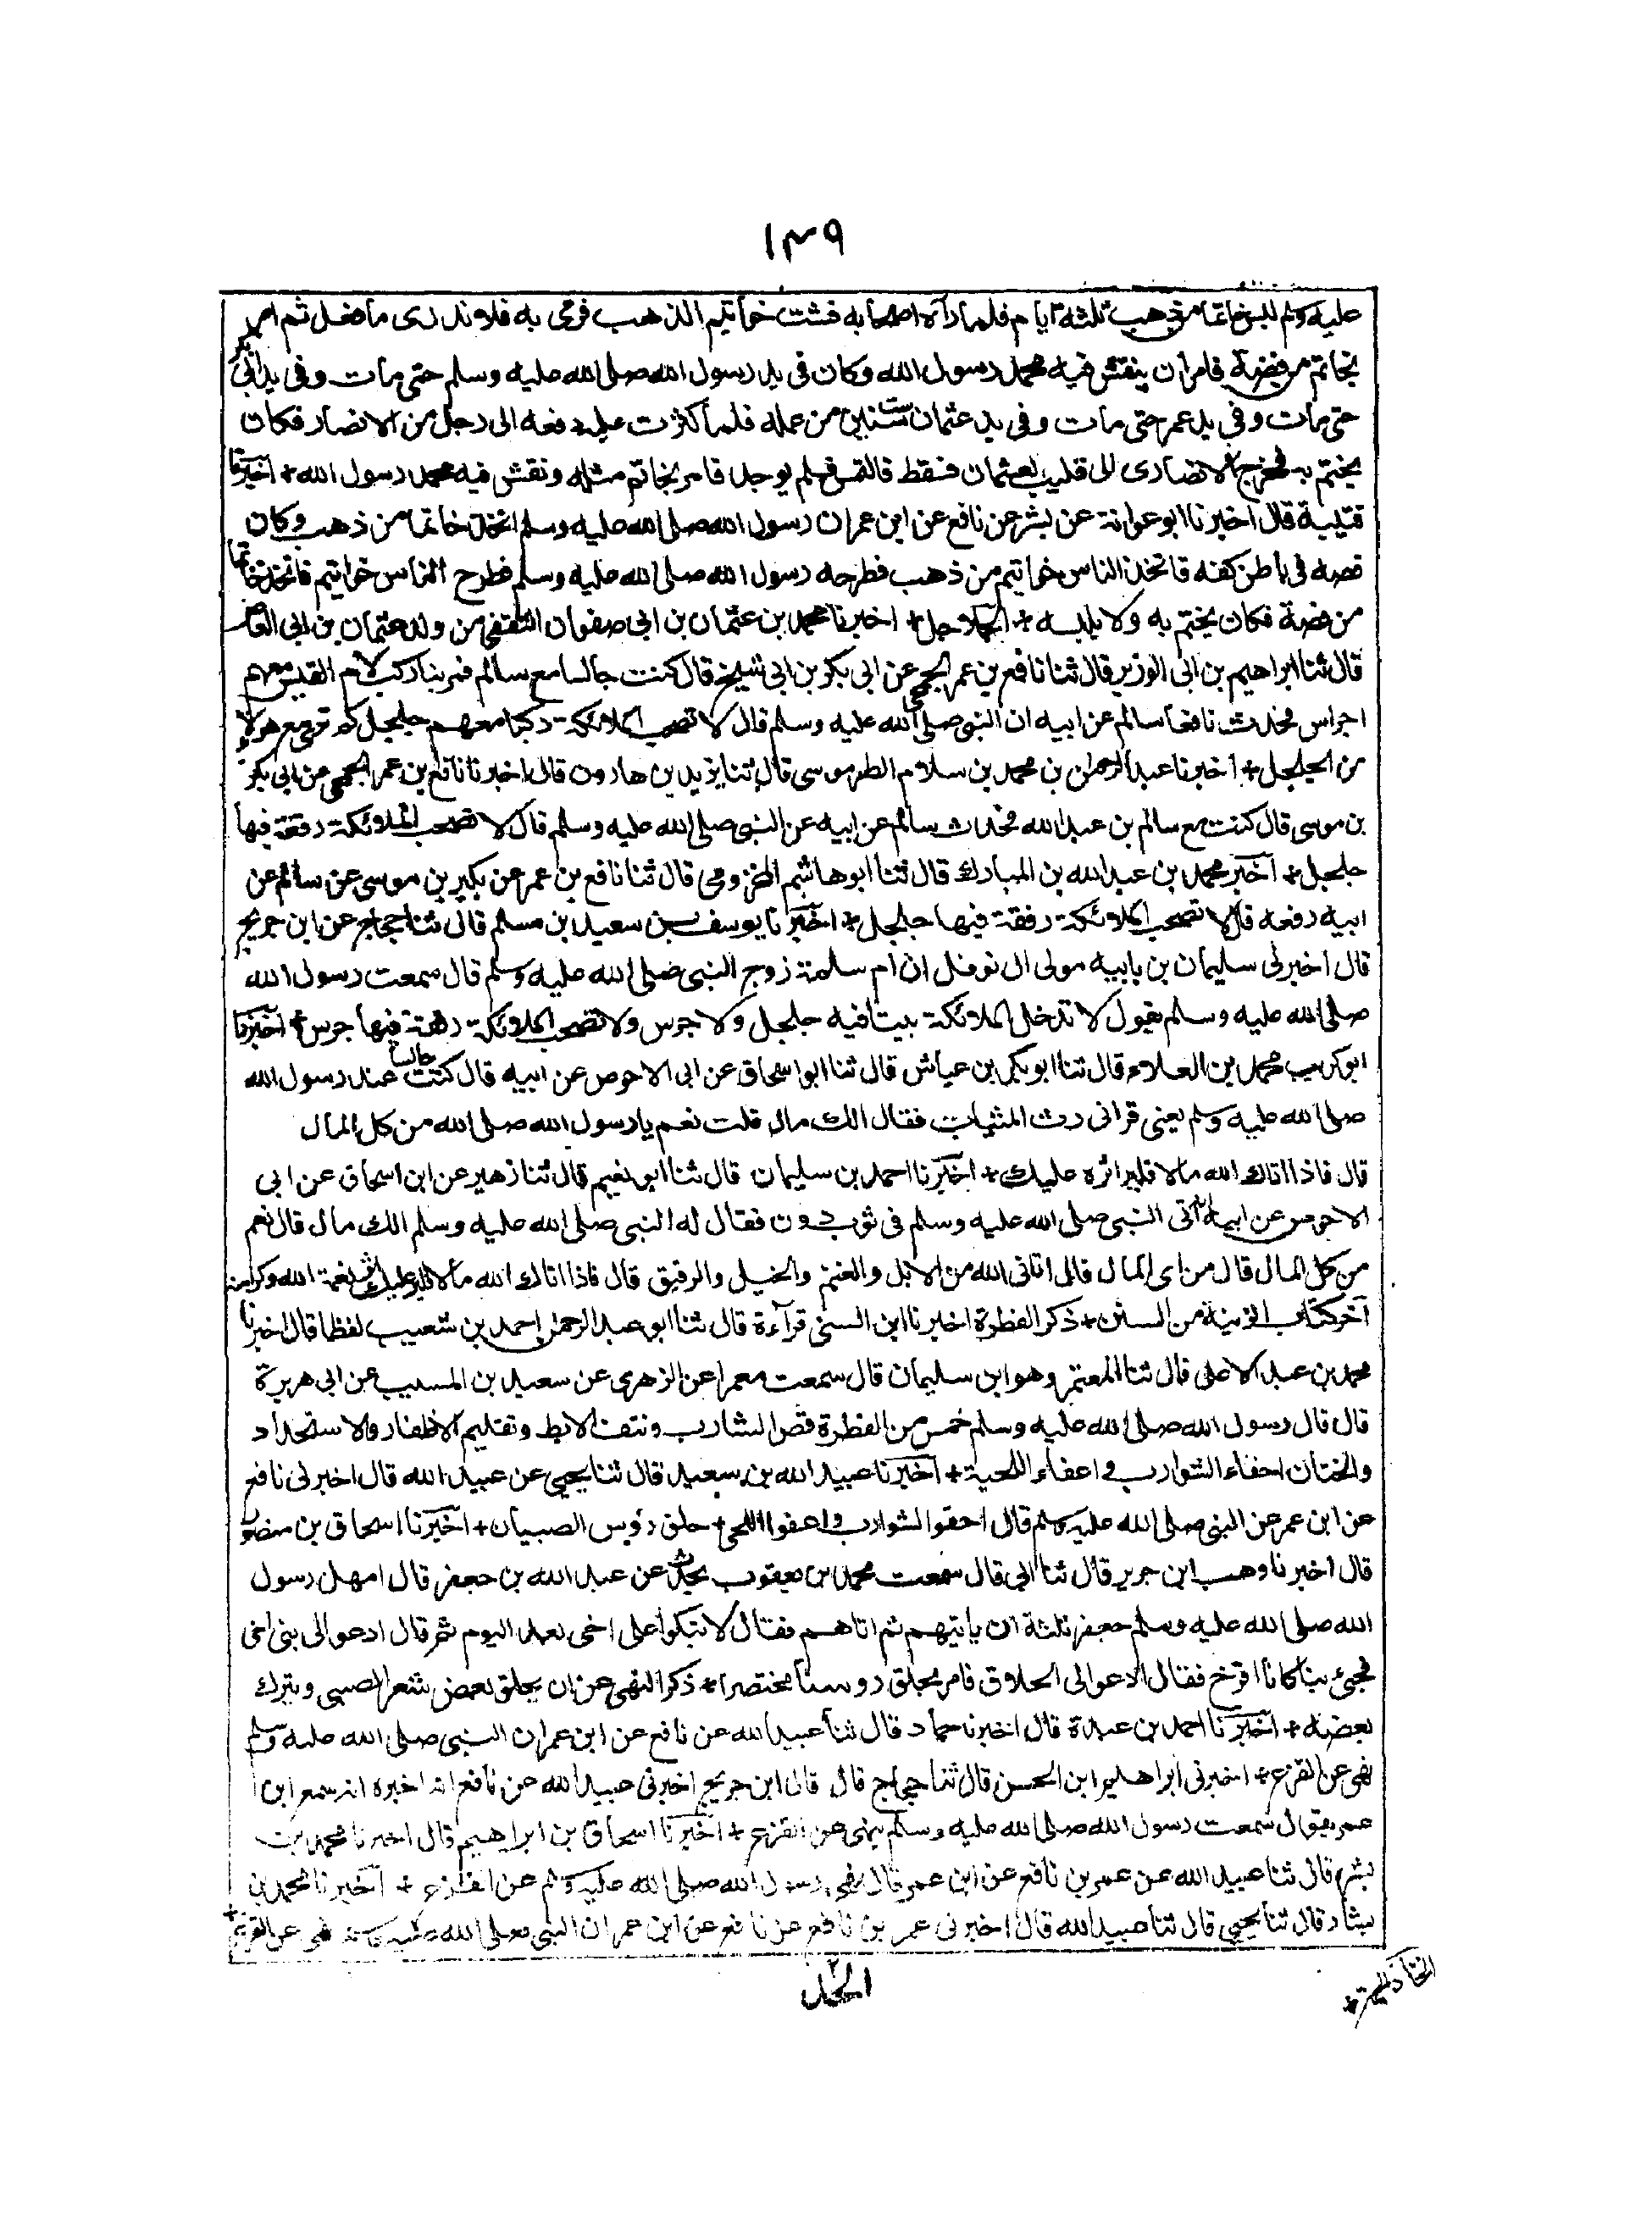 ١٣٩
عليه وسلم لبس خاتما من ذهب ثلثة ايام فلما رآه اصحابه فشت خواتيم الذهب فرمى به فلا ندرى ما فعل ثم امر
بخاتم من فضة فامر ان ينقش فيه محمد رسول الله وكان فى يد رسول الله صلى الله عليه وسلم حتى مات وفى يد ابى بكر
حتى مات وفى يد عمر حتى مات وفى يد عثمان ست سنين من عمله فلما كثرت عليه دفعه الى رجل من الانصار فكان
يختم به فخرج الانصارى الى قليب لعثمان فسقط فالتمس فلم يوجد فامر بخاتم مثله ونقش فيه محمد رسول الله + اخبرنا
قتيبة قال اخبرنا ابو عوانة عن بشر عن نافع عن ابن عمر ان رسول الله صلى الله عليه وسلم اتخذ خاتما من ذهب وكان
فصه فى باطن كفه فاتخذ الناس خواتيم من ذهب فطرحه رسول الله صلى الله عليه وسلم فطرح الناس خواتيم فاتخذ خاتما
من فضة فكان يختم به ولا يلبسه + الجلاجل + اخبرنا محمد بن عثمان بن ابى صفوان الثقفى من ولد عثمان بن ابى العاص
قال ثنا ابراهيم بن ابى الوزير قال ثنا نافع بن عمر الجمحى عن ابى بكر بن ابى شيخ قال كنت جالسا مع سالم فمر بنا ركب لام القيس معهم
اجراس فحدث نافعا سالم عن ابيه ان النبى صلى الله عليه وسلم قال لا تصحب الملائكة ركبا معهم جلجل كم ترى مع هولاء
من الجلجل + اخبرنا عبد الرحمن بن محمد بن سلام الطرسوسى قال ثنا يزيد بن هارون قال اخبرنا نافع بن عمر الجمحى عن ابى بكر
بن موسى قال كنت مع سالم بن عبد الله فحدث سالم عن ابيه عن النبى صلى الله عليه وسلم قال لا تصحب الملائكة رفقة فيها
جلجل + اخبر محمد بن عبد الله بن المبارك قال ثنا ابو هاشم المخزومى قال ثنا نافع بن عمر عن بكير بن موسى عن سالم عن
ابيه رفعه قال لا تصحب الملائكة رفقة فيها جلجل + اخبرنا يوسف بن سعيد بن مسلم قال ثنا حجاج عن ابن جريج
قال اخبرنى سليمان بن بابيه مولى ال نوفل ان ام سلمة زوج النبى صلى الله عليه وسلم قال سمعت رسول الله
صلى الله عليه وسلم يقول لا تدخل الملائكة بيتا فيه جلجل ولا جرس ولا تصحب الملائكة رفقة فيها جرس + اخبرنا
ابو كريب محمد بن العلاء قال ثنا ابو بكر بن عياش قال ثنا ابو اسحاق عن ابى الاحوص عن ابيه قال كنت جالسا عند رسول الله
صلى الله عليه وسلم يعنى فرانى رث الثياب فقال الك مال قلت نعم يا رسول الله صلى الله من كل المال
قال فاذا اتاك الله مالا فلير اثره عليك + اخبرنا احمد بن سليمان قال ثنا ابو نعيم قال ثنا زهير عن ابن اسحاق عن ابى
الاحوص عن ابيه انه اتى النبى صلى الله عليه وسلم فى ثوب دون فقال له النبى صلى الله عليه وسلم الك مال قال نعم
من كل المال قال من اى المال قال اتانى الله من الابل والغنم والخيل والرقيق قال فاذا اتاك الله مالا فلير عليك اثر نعمة الله وكرامته
آخر كتاب الزينة من السنن + ذكر الفطرة اخبرنا ابن السنى قرآءة قال ثنا ابو عبد الرحمن احمد بن شعيب لفظا قال اخبرنا
محمد بن عبد الاعلى قال ثنا المعتمر وهو ابن سليمان قال سمعت معمرا عن الزهرى عن سعيد بن المسيب عن ابى هريرة
قال قال رسول الله صلى الله عليه وسلم خمس من الفطرة قص الشارب ونتف الابط وتقليم الاظفار والاستحداد
والختان احفاء الشوارب واعفاء اللحية + اخبرنا عبيد الله بن سعيد قال ثنا يحيى عن عبيد الله قال اخبرنى نافع
عن ابن عمر عن النبى صلى الله عليه وسلم قال احفوا الشوارب واعفوا اللحى + حلق رؤس الصبيان + اخبرنا اسحاق بن منصور
قال اخبرنا وهب ابن جرير قال ثنا ابى قال سمعت محمد بن يعقوب يحدث عن عبد الله بن جعفر قال امهل رسول
الله صلى الله عليه وسلم جعفر ثلثة ان ياتيهم ثم اتاهم فقال لا تبكوا على اخى بعد اليوم ثم قال ادعوا الى بنى اخى
فجئ بنا كانا افرخ فقال ادعوا الى الحلاق فامر بحلق روسنا مختصرا + ذكر النهى عن ان يحلق بعض شعر الصبى ويترك
بعضه + اخبرنا احمد بن عبدة قال اخبرنا حماد قال ثنا عبيد الله عن نافع عن ابن عمر ان النبى صلى الله عليه وسلم
نهى عن القزع + اخبرنى ابراهيم ابن الحسن قال ثنا حجاج قال قال ابن جريج اخبرنى عبيد الله عن نافع انه اخبره انه سمع ابن ا
عمر يقول سمعت رسول الله صلى الله عليه وسلم ينهى عن القزع + اخبرنا اسحاق بن ابراهيم قال اخبرنا محمد بن
بشر قال ثنا عبيد الله عن عمر بن نافع عن ابن عمر قال نهى رسول الله صلى الله عليه وسلم عن القزع + اخبرنا محمد بن
بشار قال ثنا يحيى قال ثنا عبيد الله قال اخبرنى عمر بن نافع عن نافع عن ابن عمر ان النبى صلى الله عليه وسلم نهى عن القزع +